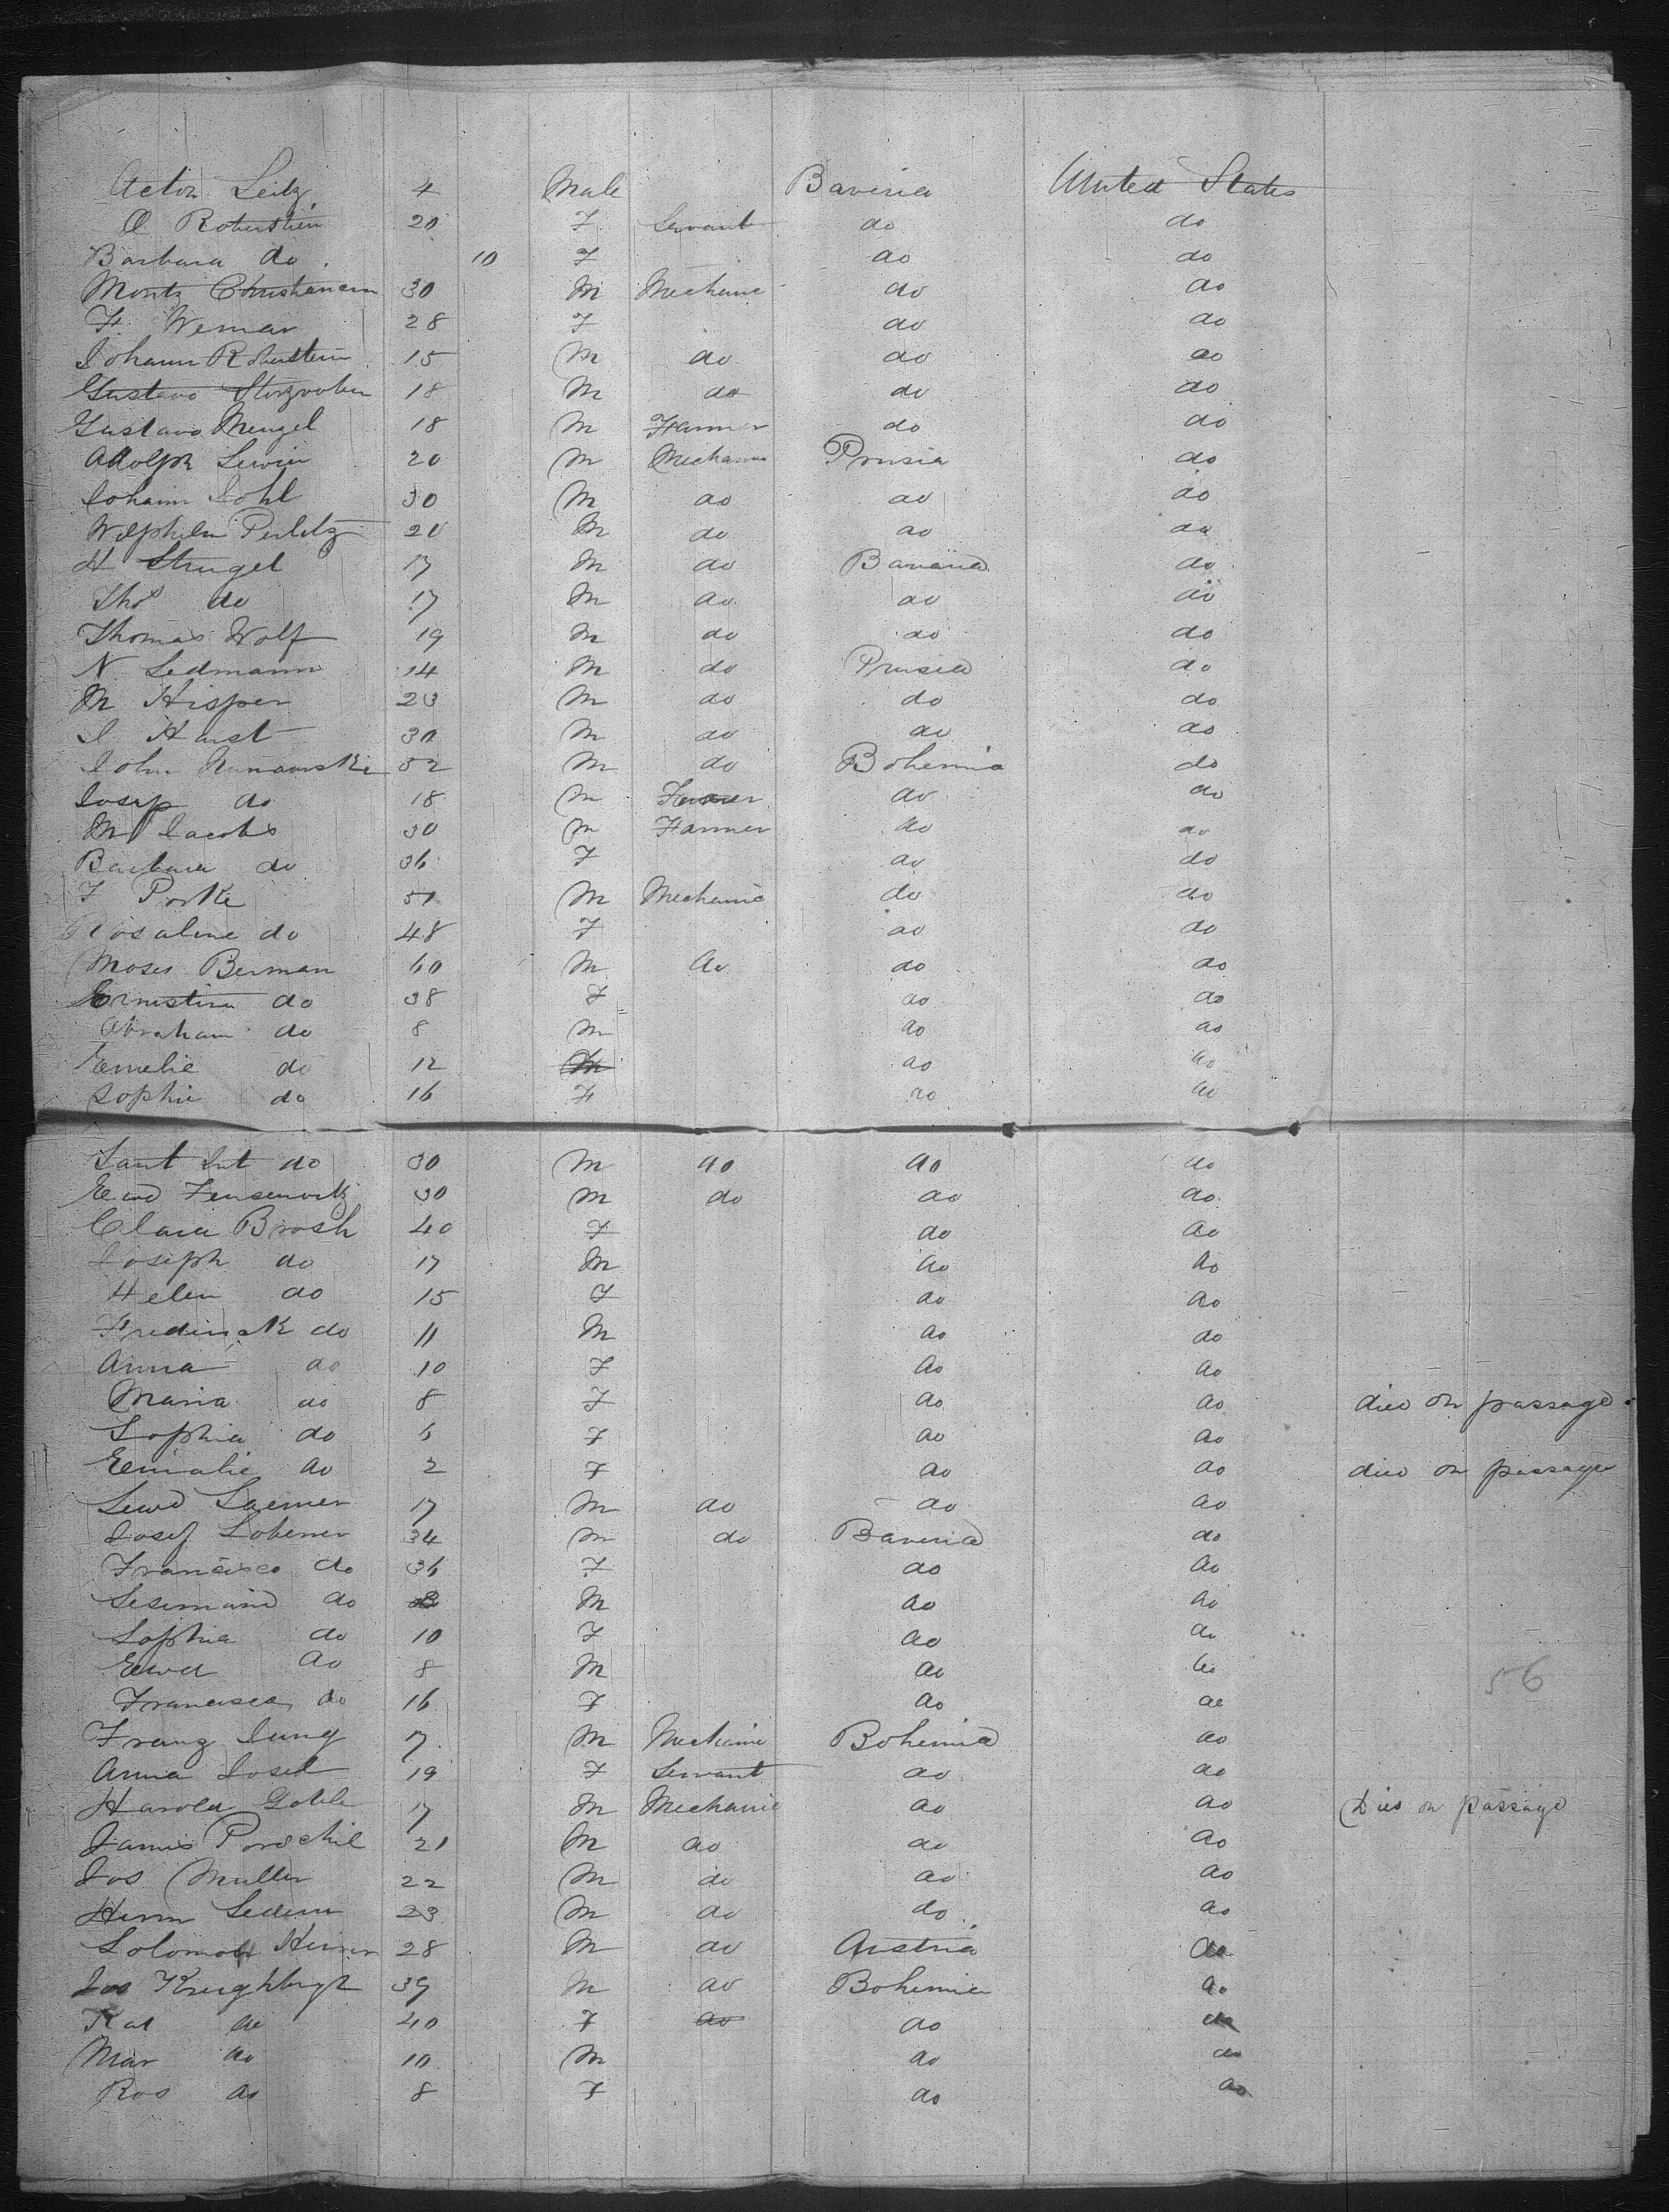 Acton Leitz 4 Male Baveria United States
O Roberstein 20 F Servant do do
Barbara do 10 F do do
Montz Christianan 30 M Mechanic do do
F. Wemar 28 F do do
Johann Roberstein 15 M do do do
Gustavo 18 M do do do
Gustavo Mengel 18 M Farmer do do
Adolph Lewin 20 M Mechanic Prusia do
Johann Johl 30 M do do do
Wilphelm Perletz 20 M do do do
H Strugel 17 M do Bavaria do
Thos do 17 M do do do
Thomas Wolf 19 M do do do
N Ledmann 14 M do Prusia do
M Hisper 23 M do do do
I Harst 30 M do do do
John 52 M do Bohemia do
Josep do 18 M Farmer do do
M Jacobs 30 M Farmer do do
Barbara do 36 F do do
F Porke 51 M Mechanic do do
Rosaline do 48 F do do
Moses Berman 60 M do do do
Ernestine do 38 F do do
Abraham do 8 M do do
Emelie do 12 M do do
Sophie do 16 F do do
do 30 M do do do
Ewd 30 M do do do
Clara Brosh 40 F do do
Joseph do 17 M do do
Helen do 15 F do do
Frederick do 11 M do do
Anna do 10 F do do
Maria do 8 F do do died on passage
Sophia do 6 F do do
Emalie do 2 F do do died on passage
Lewd Laemer 17 M do do do
Josef Lobener 34 M do Baveria do
Francisco do 36 F do do
do M do do
Sophia do 10 F do do
Ewd do 8 M do do
Francisca do 16 F do do
Franz Jung 7 M Mechanic Bohemia do
Anna Josel 19 F Servant do do
Harold Gobel 17 M Mechanic do do Died on passage
James Prochil 21 M do do do
Jos Muller 22 M do do do
Herm Lederer 23 M do do do
Solomon 28 M do Austria do
Jos 39 M do Bohemia do
Kat do 40 F do do do
Mar do 10 M do do
Ros do 8 F do do
56